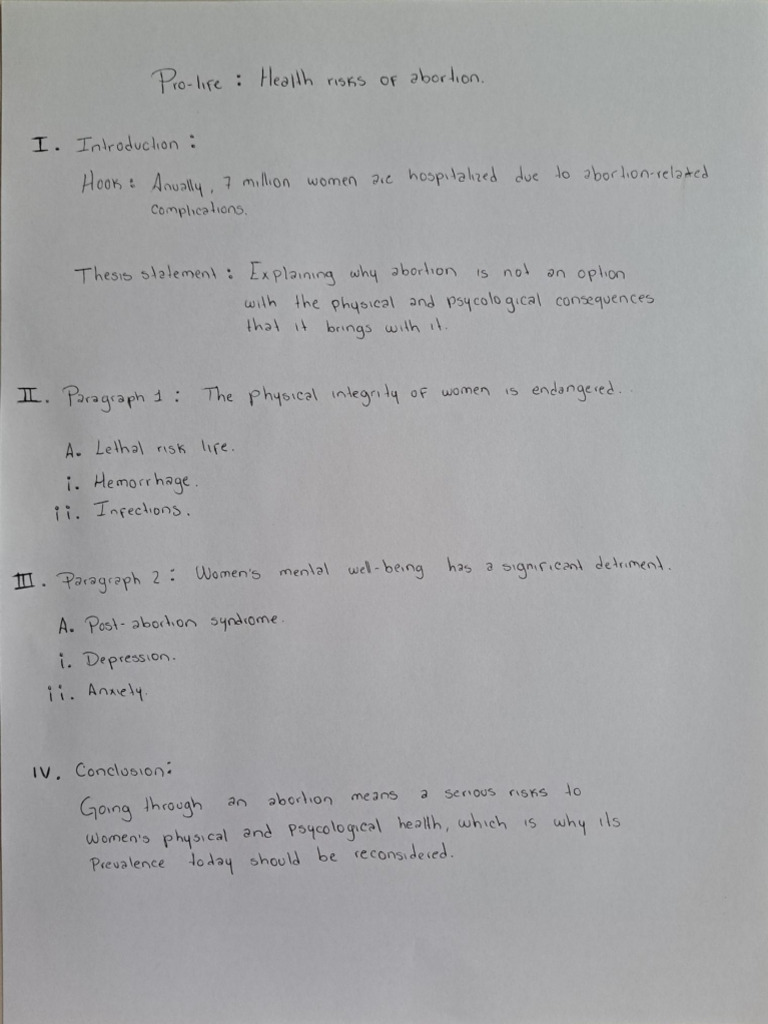 Pro-life : Health risks of abortion.
I. Introduction :
Hook : Anually, 7 million women are hospitalized due to abortion-related
complications.
Thesis statement : Explaining why abortion is not an option
with the physical and psycological consequences
that it brings with it.
II. Paragraph 1 : The physical integrity of women is endangered.
A. Lethal risk life.
i. Hemorrhage.
ii. Infections.
III. Paragraph 2 : Women's mental well-being has a significant detriment.
A. Post-abortion syndrome.
i. Depression.
ii. Anxiety.
IV. Conclusion:
Going through an abortion means a serious risks to
women's physical and psycological health, which is why its
prevalence today should be reconsidered.